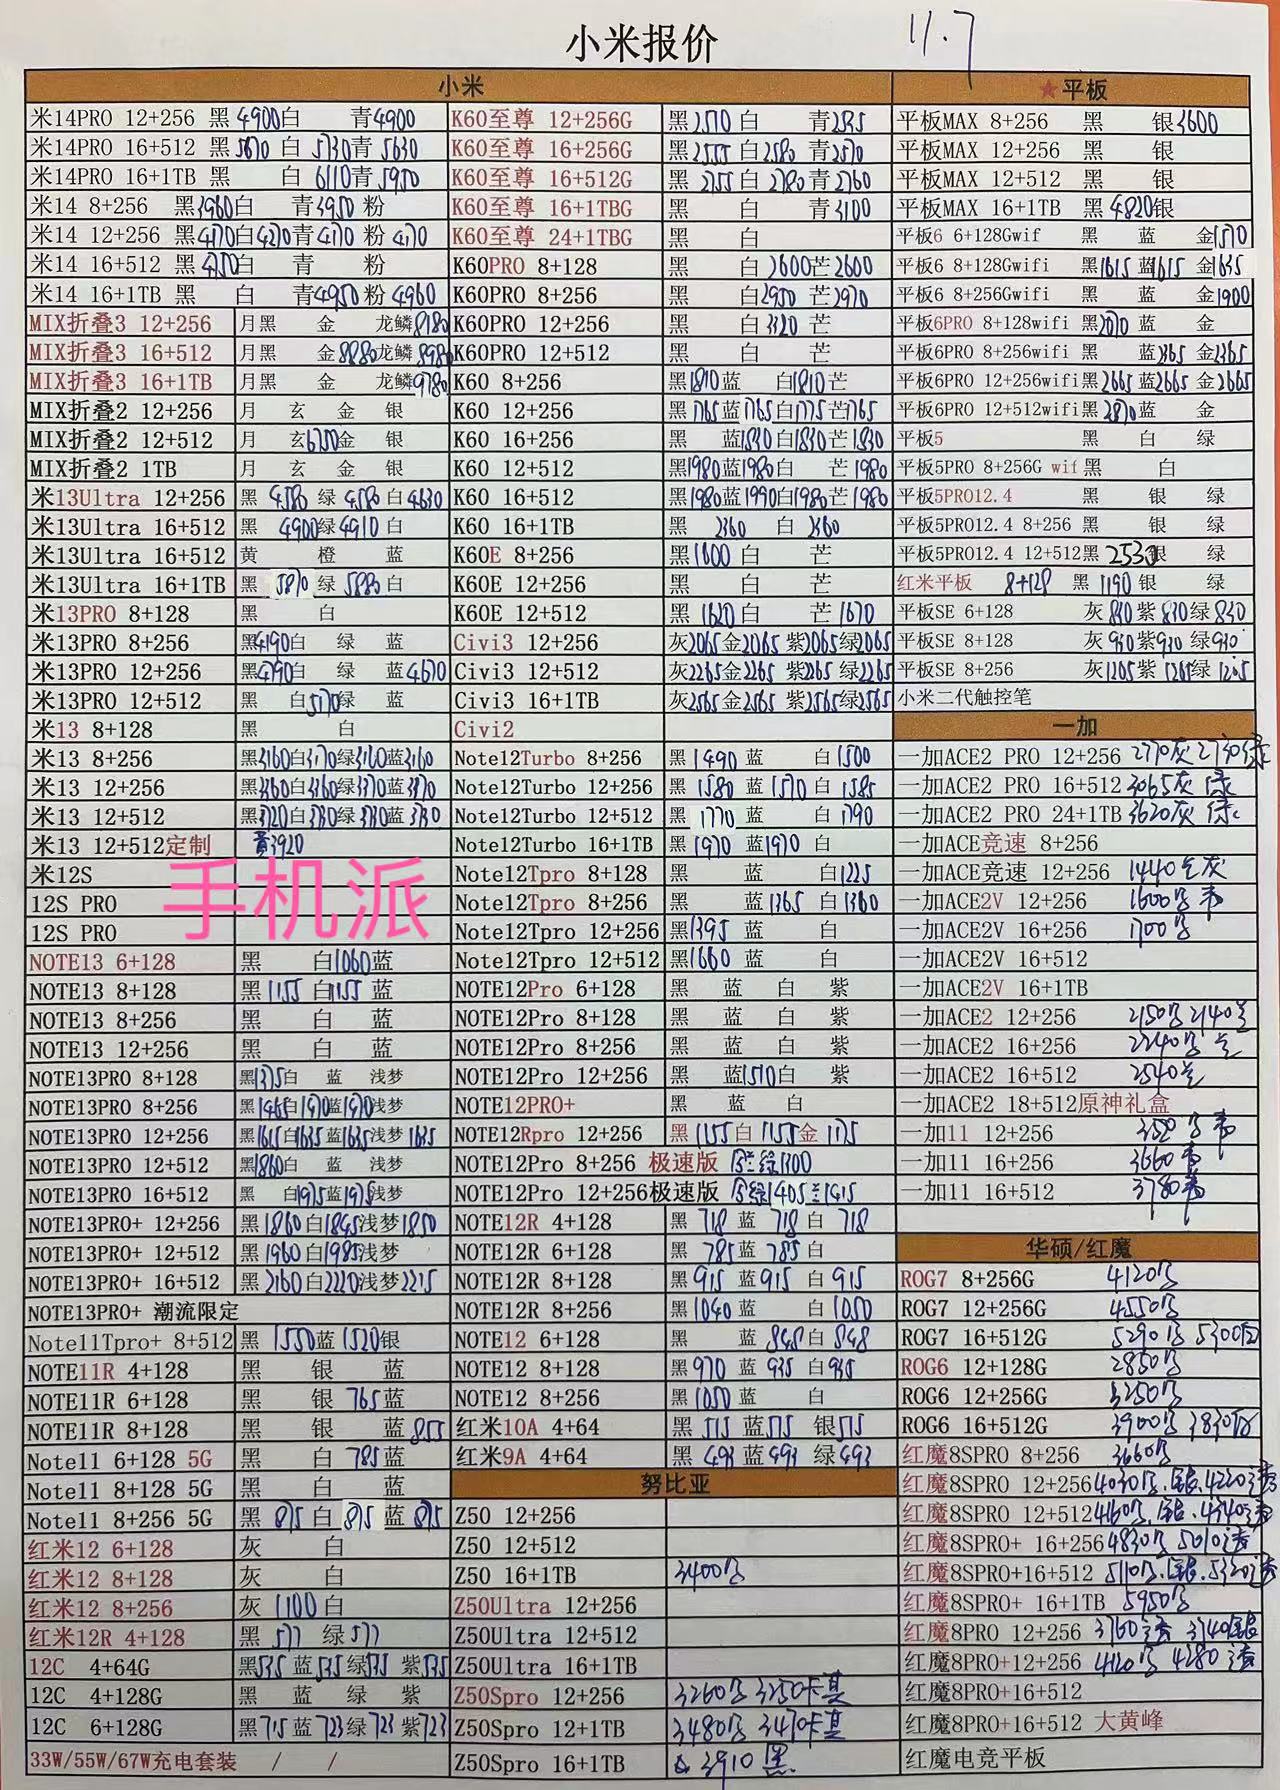 小米报价
11.7
小米
米14PRO 12+256 黑 4900 白 青4900
米14PRO 16+512 黑 5670 白 5730 青 5630
米14PRO 16+1TB 黑 白 6110 青 5950
米14 8+256 黑3960 白 青3950 粉
米14 12+256 黑4170 白4270 青4170 粉 4170
米14 16+512 黑 白 青 粉
米14 16+1TB 黑 白 青4950 粉 4960
MIX折叠3 12+256 月黑 金 龙鳞8180
MIX折叠3 16+512 月黑 金8880 龙鳞8980
MIX折叠3 16+1TB 月黑 金 龙鳞9780
MIX折叠2 12+256 月 玄 金 银
MIX折叠2 12+512 月 玄6750 金 银
MIX折叠2 1TB 月 玄 金 银
米13Ultra 12+256 黑 4580 绿 4580 白 4630
米13Ultra 16+512 黑 4900 绿 4910 白
米13Ultra 16+512 黄 橙 蓝
米13Ultra 16+1TB 黑 5870 绿 5880 白
米13PRO 8+128 黑 白
米13PRO 8+256 黑4190 白 绿 蓝
米13PRO 12+256 黑4790 白 绿 蓝4670
米13PRO 12+512 黑 白5170 绿 蓝
米13 8+128 黑 白
米13 8+256 黑3160 白3170 绿3160 蓝3160
米13 12+256 黑3360 白3360 绿3370 蓝3370
米13 12+512 黑3720 白3730 绿3730 蓝3730
米13 12+512定制 黄3920
米12S
12S PRO
12S PRO
手机派
NOTE13 6+128 黑 白1060 蓝
NOTE13 8+128 黑 1155 白1155 蓝
NOTE13 8+256 黑 白 蓝
NOTE13 12+256 黑 白 蓝
NOTE13PRO 8+128 黑1375 白 蓝 浅梦
NOTE13PRO 8+256 黑1465 白1470 蓝1470 浅梦
NOTE13PRO 12+256 黑1615 白1635 蓝1635 浅梦 1635
NOTE13PRO 12+512 黑1860 白 蓝 浅梦
NOTE13PRO 16+512 黑 白1975 蓝1975 浅梦
NOTE13PRO+ 12+256 黑1860 白1845 浅梦1850
NOTE13PRO+ 12+512 黑1960 白1985 浅梦
NOTE13PRO+ 16+512 黑2160 白2220 浅梦2215
NOTE13PRO+ 潮流限定
Note11Tpro+ 8+512 黑 1550 蓝 1520 银
NOTE11R 4+128 黑 银 蓝
NOTE11R 6+128 黑 银 765 蓝
NOTE11R 8+128 黑 银 蓝 855
Note11 6+128 5G 黑 白 785 蓝
Note11 8+128 5G 黑 白 蓝
Note11 8+256 5G 黑 875 白 875 蓝 875
红米12 6+128 灰 白
红米12 8+128 灰 白
红米12 8+256 灰 1100 白
红米12R 4+128 黑 577 绿 577
12C 4+64G 黑535 蓝535 绿535 紫535
12C 4+128G 黑 蓝 绿 紫
12C 6+128G 黑 715 蓝 723 绿 723 紫723
33W/55W/67W充电套装 / /
K60至尊 12+256G 黑2510 白 青2535
K60至尊 16+256G 黑2555 白2580 青2570
K60至尊 16+512G 黑 2755 白 2780 青2760
K60至尊 16+1TBG 黑 白 青3100
K60至尊 24+1TBG 黑 白
K60PRO 8+128 黑 白2600 芒2600
K60PRO 8+256 黑 白2950 芒2970
K60PRO 12+256 黑 白3120 芒
K60PRO 12+512 黑 白 芒
K60 8+256 黑1810 蓝 白1810 芒
K60 12+256 黑1765 蓝1765 白1775 芒1765
K60 16+256 黑 蓝1830 白1830 芒1830
K60 12+512 黑1980 蓝1980 白 芒 1980
K60 16+512 黑1980 蓝1990 白1980 芒 1980
K60 16+1TB 黑 2360 白 2360
K60E 8+256 黑1600 白 芒
K60E 12+256 黑 白 芒
K60E 12+512 黑 1620 白 芒 1670
Civi3 12+256 灰2065 金2065 紫2065 绿2065
Civi3 12+512 灰2265 金2265 紫2265 绿2265
Civi3 16+1TB 灰2565 金2565 紫2565 绿2565
Civi2
Note12Turbo 8+256 黑 1490 蓝 白 1500
Note12Turbo 12+256 黑 1580 蓝 1570 白 1585
Note12Turbo 12+512 黑 1770 蓝 白 1790
Note12Turbo 16+1TB 黑 1970 蓝1970 白
Note12Tpro 8+128 黑 蓝 白1225
Note12Tpro 8+256 黑 蓝1365 白 1360
Note12Tpro 12+256 黑1395 蓝 白
Note12Tpro 12+512 黑1660 蓝 白
NOTE12Pro 6+128 黑 蓝 白 紫
NOTE12Pro 8+128 黑 蓝 白 紫
NOTE12Pro 8+256 黑 蓝 白 紫
NOTE12Pro 12+256 黑 蓝1510 白 紫
NOTE12PRO+ 黑 蓝 白
NOTE12Rpro 12+256 黑 1155 白 1155 金 1175
NOTE12Pro 8+256 极速版 1300
NOTE12Pro 12+256极速版 1405 1415
NOTE12R 4+128 黑 718 蓝 718 白 718
NOTE12R 6+128 黑 785 蓝 785 白
NOTE12R 8+128 黑 915 蓝 915 白 915
NOTE12R 8+256 黑1040 蓝 白 1050
NOTE12 6+128 黑 蓝 848 白 848
NOTE12 8+128 黑 970 蓝 935 白935
NOTE12 8+256 黑 1050 蓝 白
红米10A 4+64 黑 515 蓝515 银515
红米9A 4+64 黑 493 蓝 493 绿 493
努比亚
Z50 12+256
Z50 12+512
Z50 16+1TB 3400
Z50Ultra 12+256
Z50Ultra 12+512
Z50Ultra 16+1TB
Z50Spro 12+256 3260 3250卡其
Z50Spro 12+1TB 3480 3470卡其
Z50Spro 16+1TB 3910 黑
★平板
平板MAX 8+256 黑 银3600
平板MAX 12+256 黑 银
平板MAX 12+512 黑 银
平板MAX 16+1TB 黑 4820 银
平板6 6+128Gwif 黑 蓝 金1570
平板6 8+128Gwifi 黑1615 蓝1615 金1635
平板6 8+256Gwifi 黑 蓝 金1900
平板6PRO 8+128wifi 黑2070 蓝 金
平板6PRO 8+256wifi 黑 蓝2365 金2365
平板6PRO 12+256wifi 黑 2665 蓝2665 金2665
平板6PRO 12+512wifi 黑 2870 蓝 金
平板5 黑 白 绿
平板5PRO 8+256G wif 黑 白
平板5PRO12.4 黑 银 绿
平板5PRO12.4 8+256 黑 银 绿
平板5PRO12.4 12+512 黑 2530 银 绿
红米平板 8+128 黑 1190 银 绿
平板SE 6+128 灰 830 紫 830 绿 830
平板SE 8+128 灰 930 紫930 绿930
平板SE 8+256 灰1205 紫 1205 绿 1205
小米二代触控笔
一加
一加ACE2 PRO 12+256 2770灰 2730绿
一加ACE2 PRO 16+512 3065灰 绿
一加ACE2 PRO 24+1TB 3620灰 绿
一加ACE竞速 8+256
一加ACE竞速 12+256 1440 灰
一加ACE2V 12+256 1600
一加ACE2V 16+256 1700
一加ACE2V 16+512
一加ACE2V 16+1TB
一加ACE2 12+256 2150 2140
一加ACE2 16+256 2240
一加ACE2 16+512 2540
一加ACE2 18+512原神礼盒
一加11 12+256
一加11 16+256 3660
一加11 16+512 3780
华硕/红魔
ROG7 8+256G 4120
ROG7 12+256G 4550
ROG7 16+512G 5290 5300白
ROG6 12+128G 2850
ROG6 12+256G 3250
ROG6 16+512G 3900 3830白
红魔8SPRO 8+256 3660
红魔8SPRO 12+256 4030 4220
红魔8SPRO 12+512 4160 4340
红魔8SPRO+ 16+256 4830 5010
红魔8SPRO+16+512 5110 5320
红魔8SPRO+ 16+1TB 5950
红魔8PRO 12+256 3760 3740
红魔8PRO+12+256 4120 4280
红魔8PRO+16+512
红魔8PRO+16+512 大黄蜂
红魔电竞平板